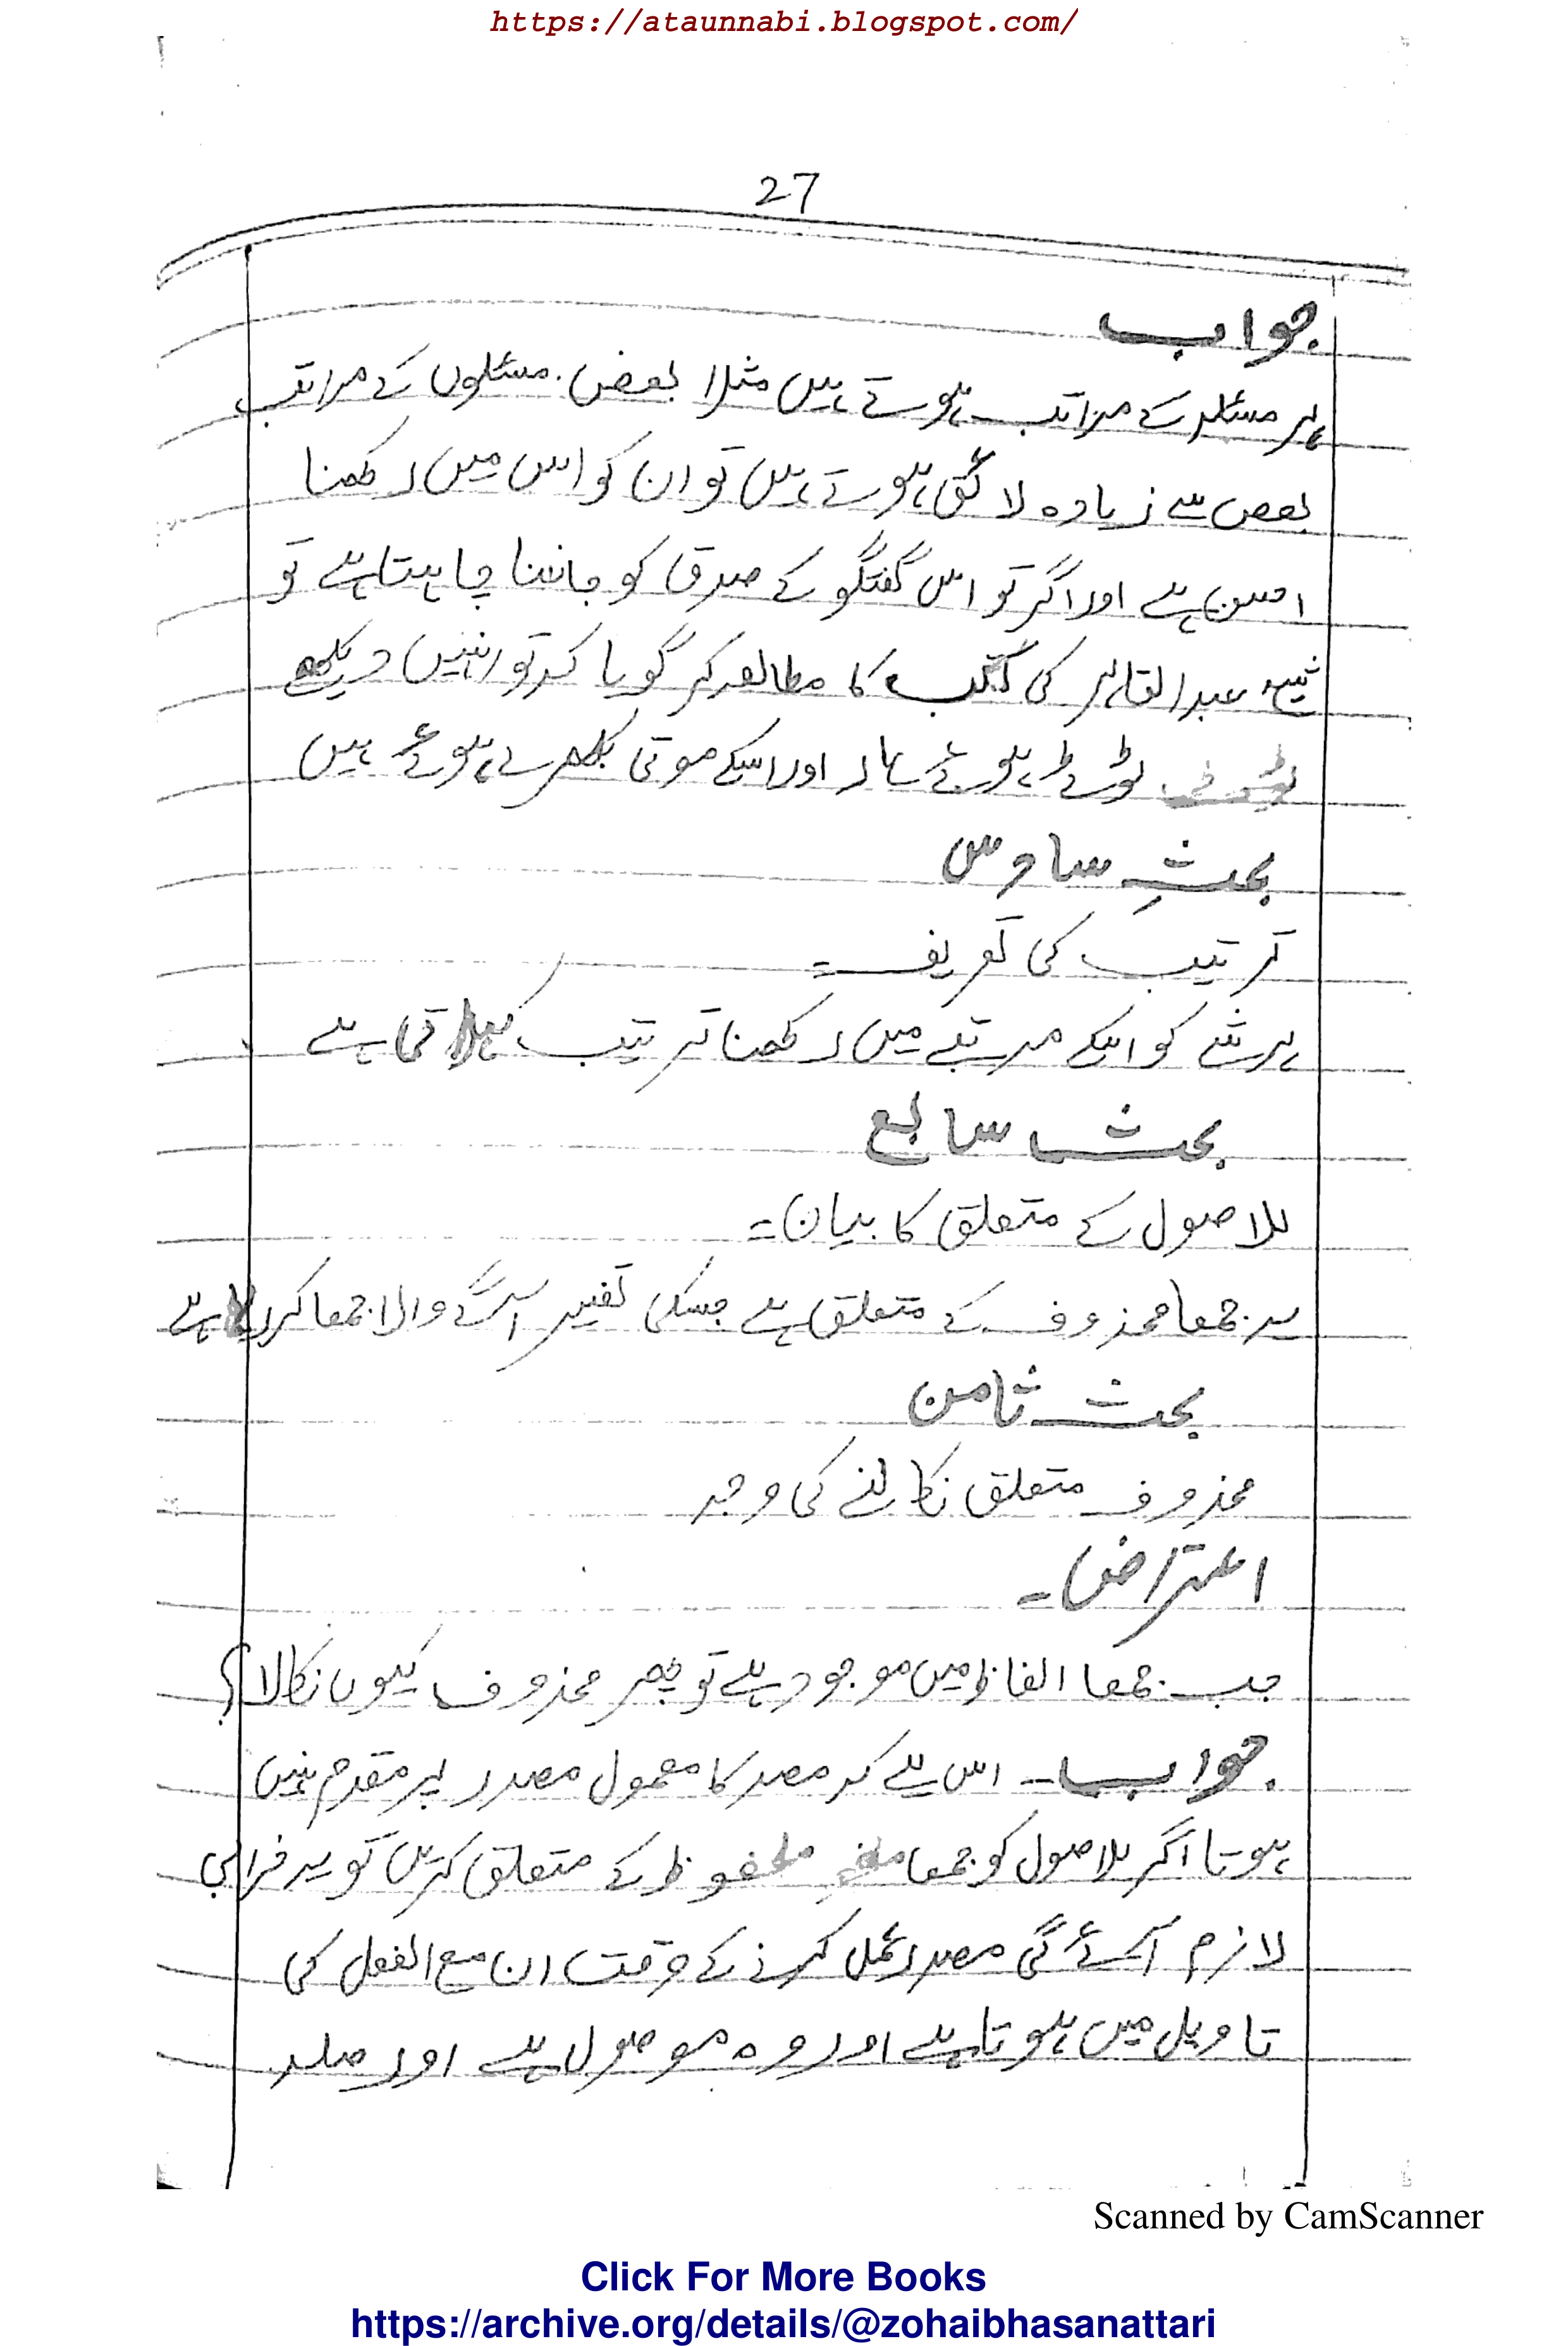 https://ataunnabi.blogspot.com/
27
جواب
ہر مسئلہ کے مراتب ہوتے ہیں مثلا بعض مسئلوں کے مراتب
بعض سے زیادہ لائق ہوتے ہیں تو ان کو اس میں رکھنا
احسن ہے اور اگر تو اس گفتگو کے صدق کو جاننا چاہتا ہے تو
شیخ عبد القاہر کی کتب کا مطالعہ کر گویا کہ تو انہیں دیکھے
ٹوٹے ہوئے ہار اور اسکے موتی بکھرے ہوئے ہیں
بحثِ سادس
ترتیب کی تعریف =
ہر شے کو اسکے مرتبے میں رکھنا ترتیب کہلاتا ہے
بحث سابع
للاصول کے متعلق کا بیان =
یہ جمعا محذوف کے متعلق ہے جسکی تفسیر آگے والا جمعا کر رہا ہے
بحث ثامن
محذوف متعلق نکالنے کی وجہ
اعتراض ۔
جب جمعا الفاظ میں موجود ہے تو پھر محذوف کیوں نکالا؟
جواب ۔ اس لے کہ مصد کا معمول مصدر پر مقدم نہیں
ہوتا اگر للاصول کو جمعا ملفوظ کے متعلق کریں تو یہ خرابی
لازم آئے گی مصدر عمل کرنے کے وقت ان مع الفعل کی
تاویل میں ہوتا ہے اور وہ موصول ہے اور صلہ
Scanned by CamScanner
Click For More Books
https://archive.org/details/@zohaibhasanattari